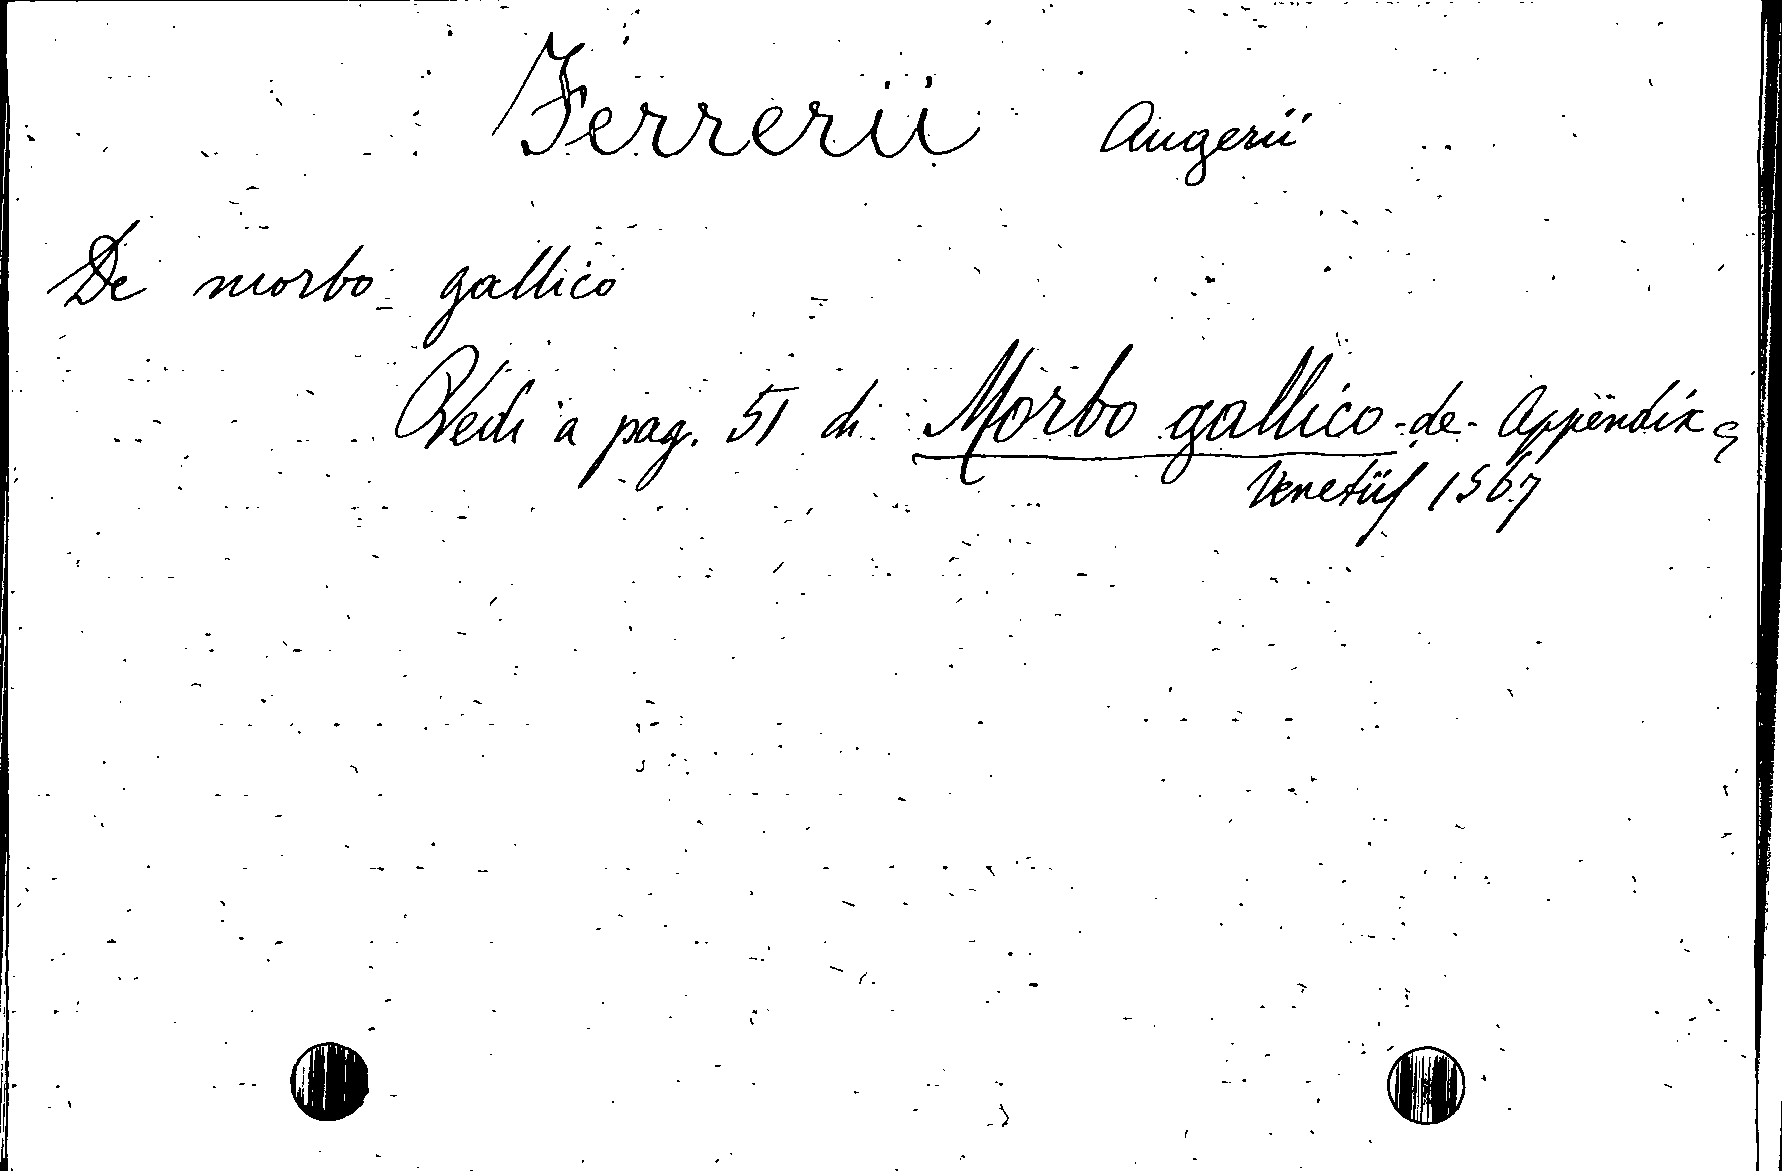 Ferrerii Augerii
De morbo gallico
Vedi a pag. 51 di Morbo gallico -de- Appendix
Venetiis 1567